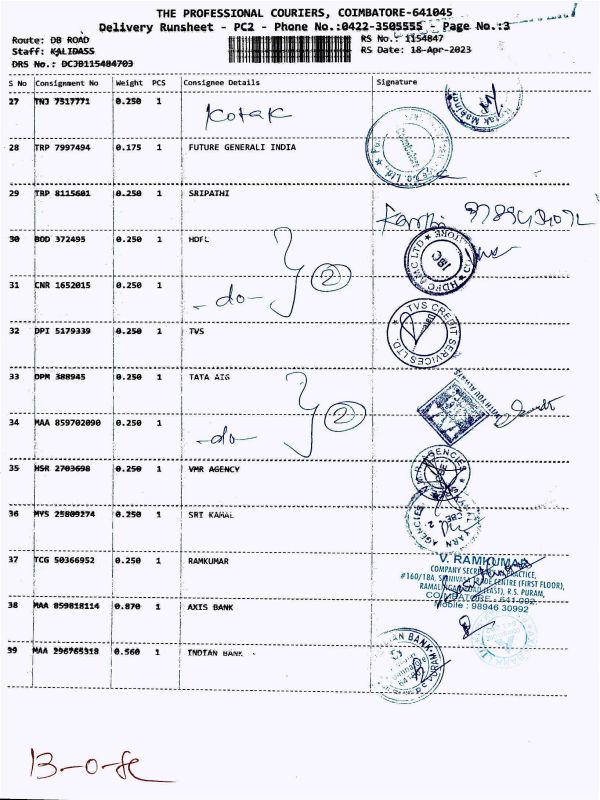 THE PROFESSIONAL COURIERS, COIMBATORE-641045
Delivery Runsheet - PC2 - Phone No.:0422-3505555 - Page No.:3
Route: DB ROAD
RS No.: 1154847
Staff: KALIDASS
RS Date: 18-Apr-2023
DRS No.: DCJB115484703
S No Consignment No Weight PCS Consignee Details Signature
27 TNJ 7517771 0.250 1 Kotak
28 TRP 7997494 0.175 1 FUTURE GENERALI INDIA
29 TRP 8115601 0.250 1 SRIPATHI
30 BOD 372495 0.250 1 HDFC
HDFC AMC LTD
31 CNR 1652015 0.250 1 -do- 2
32 DPI 5179339 0.250 1 TVS
TVS CREDIT SERVICES LTD.
33 DPM 388945 0.250 1 TATA AIG
WITH YOU ALWAYS
34 MAA 859702090 0.250 1 -do- 2
35 HSR 2703698 0.250 1 VMR AGENCY
36 MYS 25809274 0.250 1 SRI KAMAL
37 TCG 50366952 0.250 1 RAMKUMAR
V. RAMKUMAR
COMPANY SECRETARY IN PRACTICE,
#160/18A, SRINIVASA TRADE CENTRE (FIRST FLOOR),
RAMALINGAM ROAD (EAST), R.S. PURAM,
COIMBATORE - 641 002.
Mobile : 98946 30992
38 MAA 859818114 0.870 1 AXIS BANK
39 MAA 296765318 0.560 1 INDIAN BANK
INDIAN BANK